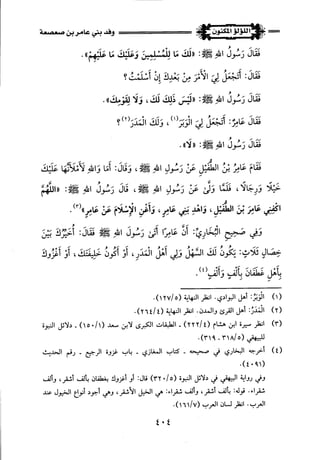 اللؤلؤ المكنون
وفد بني عامر بن صعصعة
فَقَالَ رَسُولُ اللهِ ﷺ: «لَكَ مَا لِلْمُسْلِمِينَ وَعَلَيْكَ مَا عَلَيْهِمْ».
فَقَالَ: أَتَجْعَلُ لِيَ الْأَمْرَ مِنْ بَعْدِكَ إِنْ أَسْلَمْتُ؟
فَقَالَ رَسُولُ اللهِ ﷺ: «لَيْسَ ذَلِكَ لَكَ، وَلَا لِقَوْمِكَ».
فَقَالَ عَامِرٌ: أَتَجْعَلُ لِيَ الْوَبَرَ(١)، وَلَكَ الْمَدَرُ(٢)؟
فَقَالَ رَسُولُ اللهِ ﷺ: «لَا».
فَقَامَ عَامِرُ بْنُ الطُّفَيْلِ عَنْ رَسُولِ اللهِ ﷺ، وَقَالَ: أَمَا وَاللهِ لَأَمْلَأَنَّهَا عَلَيْكَ
خَيْلًا وَرِجَالًا، فَلَمَّا وَلَّى عَنْ رَسُولِ اللهِ ﷺ، قَالَ رَسُولُ اللهِ ﷺ: «اللَّهُمَّ
اكْفِنِي عَامِرَ بْنَ الطُّفَيْلِ، وَاهْدِ بَنِي عَامِرٍ، وَأَغْنِ الْإِسْلَامَ عَنْ عَامِرٍ»(٣).
وَفِي صَحِيحِ الْبُخَارِيِّ: أَنَّ عَامِرًا أَتَى رَسُولَ اللهِ ﷺ فَقَالَ: أُخَيِّرُكَ بَيْنَ
خِصَالٍ ثَلَاثٍ: يَكُونُ لَكَ أَهْلُ السَّهْلِ وَلِي أَهْلُ الْمَدَرِ، أَوْ أَكُونُ خَلِيفَتَكَ، أَوْ أَغْزُوكَ
بِأَهْلِ غَطَفَانَ بِأَلْفٍ وَأَلْفٍ(٤).
(١) الْوَبَرُ: أهل البوادي. انظر النهاية (١٢٧/٥).
(٢) الْمَدَرُ: أهل القرى والمدن. انظر النهاية (٢٦٤/٤).
(٣) انظر سيرة ابن هشام (٢٢٢/٤) - الطبقات الكبرى لابن سعد (١٥٠/١) - دلائل النبوة
للبيهقي (٣١٨/٥ - ٣١٩).
(٤) أخرجه البخاري في صحيحه - كتاب المغازي - باب غزوة الرجيع - رقم الحديث
(٤٠٩١).
وفي رواية البيهقي في دلائل النبوة (٣٢٠/٥) قال: أو أغزوك بغطفان بألف أشقر، وألف
شقراء. قوله: بألف أشقر، وألف شقراء: هي الخيل الأشقر، وهي أجود أنواع الخيول عند
العرب. انظر لسان العرب (١٦١/٧).
٤٠٤